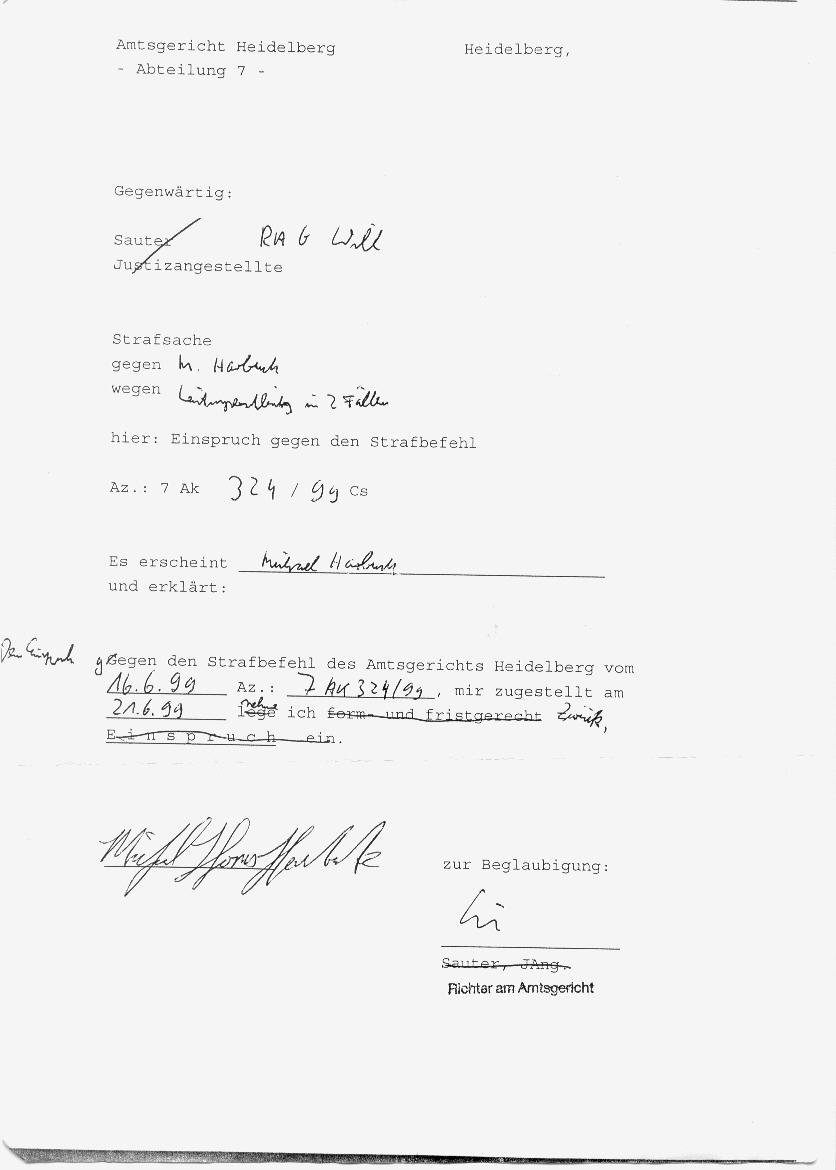 Amtsgericht Heidelberg Heidelberg,
- Abteilung 7 -
Gegenwärtig:
Sauter RiAG Will
Justizangestellte
Strafsache
gegen M.
wegen in 2 Fällen
hier: Einspruch gegen den Strafbefehl
Az.: 7 Ak 324 / 99 Cs
Es erscheint Michael
und erklärt:
Den Einspruch gegen den Strafbefehl des Amtsgerichts Heidelberg vom
16.6.99 Az.: 7 AK 324/99, mir zugestellt am
21.6.99 lege nehme ich form- und fristgerecht zurück,
Einspruch ein.
zur Beglaubigung:
Sauter, JAng.
Richter am Amtsgericht